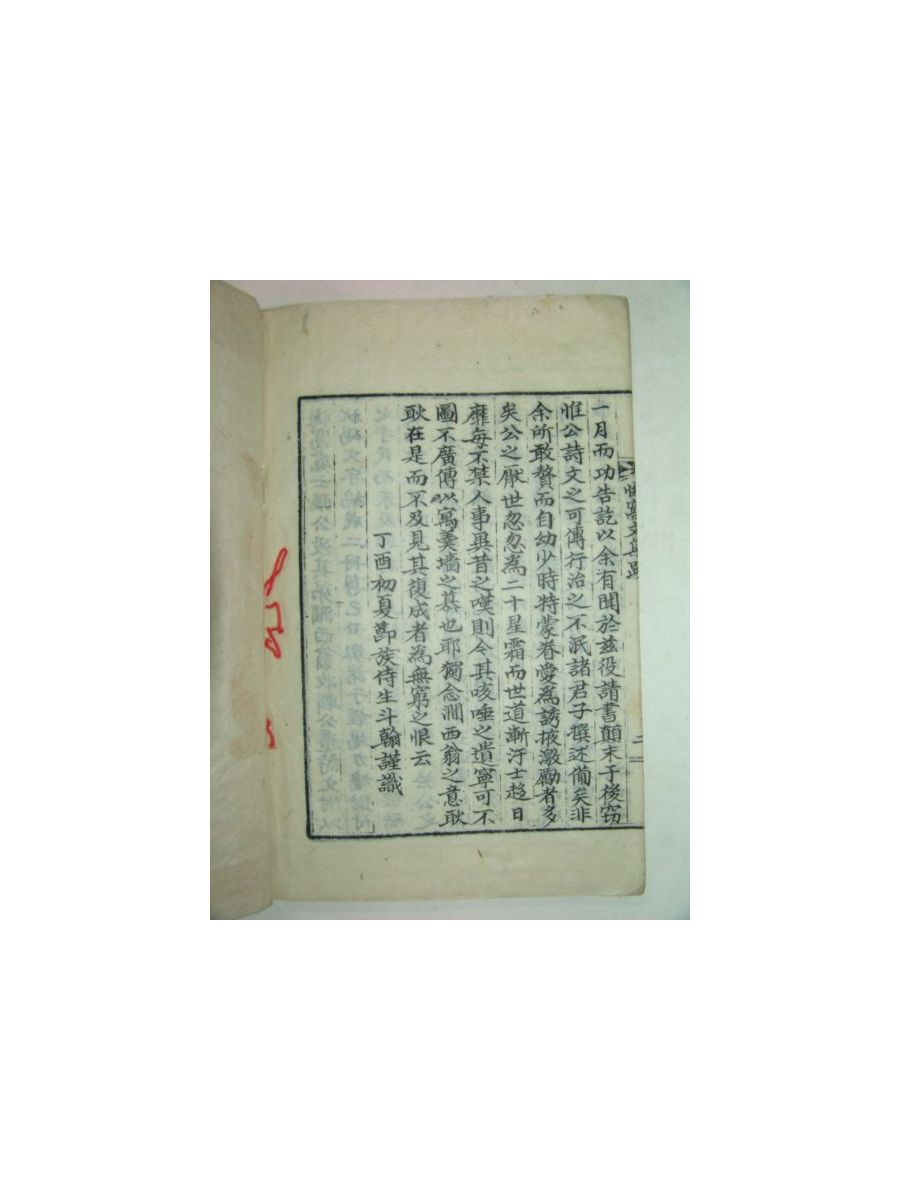 一月而功告訖以余有聞於玆役請書顛末于後窃
惟公詩文之可傳行治之不泯諸君子撰述備矣非
余所敢贅而自幼少時特蒙眷愛爲誘掖激勵者多
矣公之厭世忽忽爲二十星霜而世道漸汙士趍日
靡每不禁人事異昔之嘆則今其咳唾之遺寧可不
圖不廣傳以寓羹墻之慕也耶獨念澗西翁之意耿
耿在是而不及見其復成者爲無窮之恨云
丁酉初夏節族侍生斗翰謹識
文集跋
二